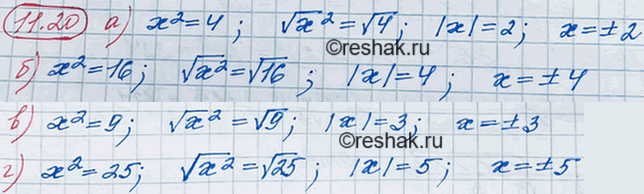 11.20 а) x² = 4; √x² = √4; |x| = 2; x = ±2
©reshak.ru
б) x² = 16; √x² = √16; |x| = 4; x = ±4
в) x² = 9; √x² = √9; |x| = 3; x = ±3
©reshak.ru
г) x² = 25; √x² = √25; |x| = 5; x = ±5